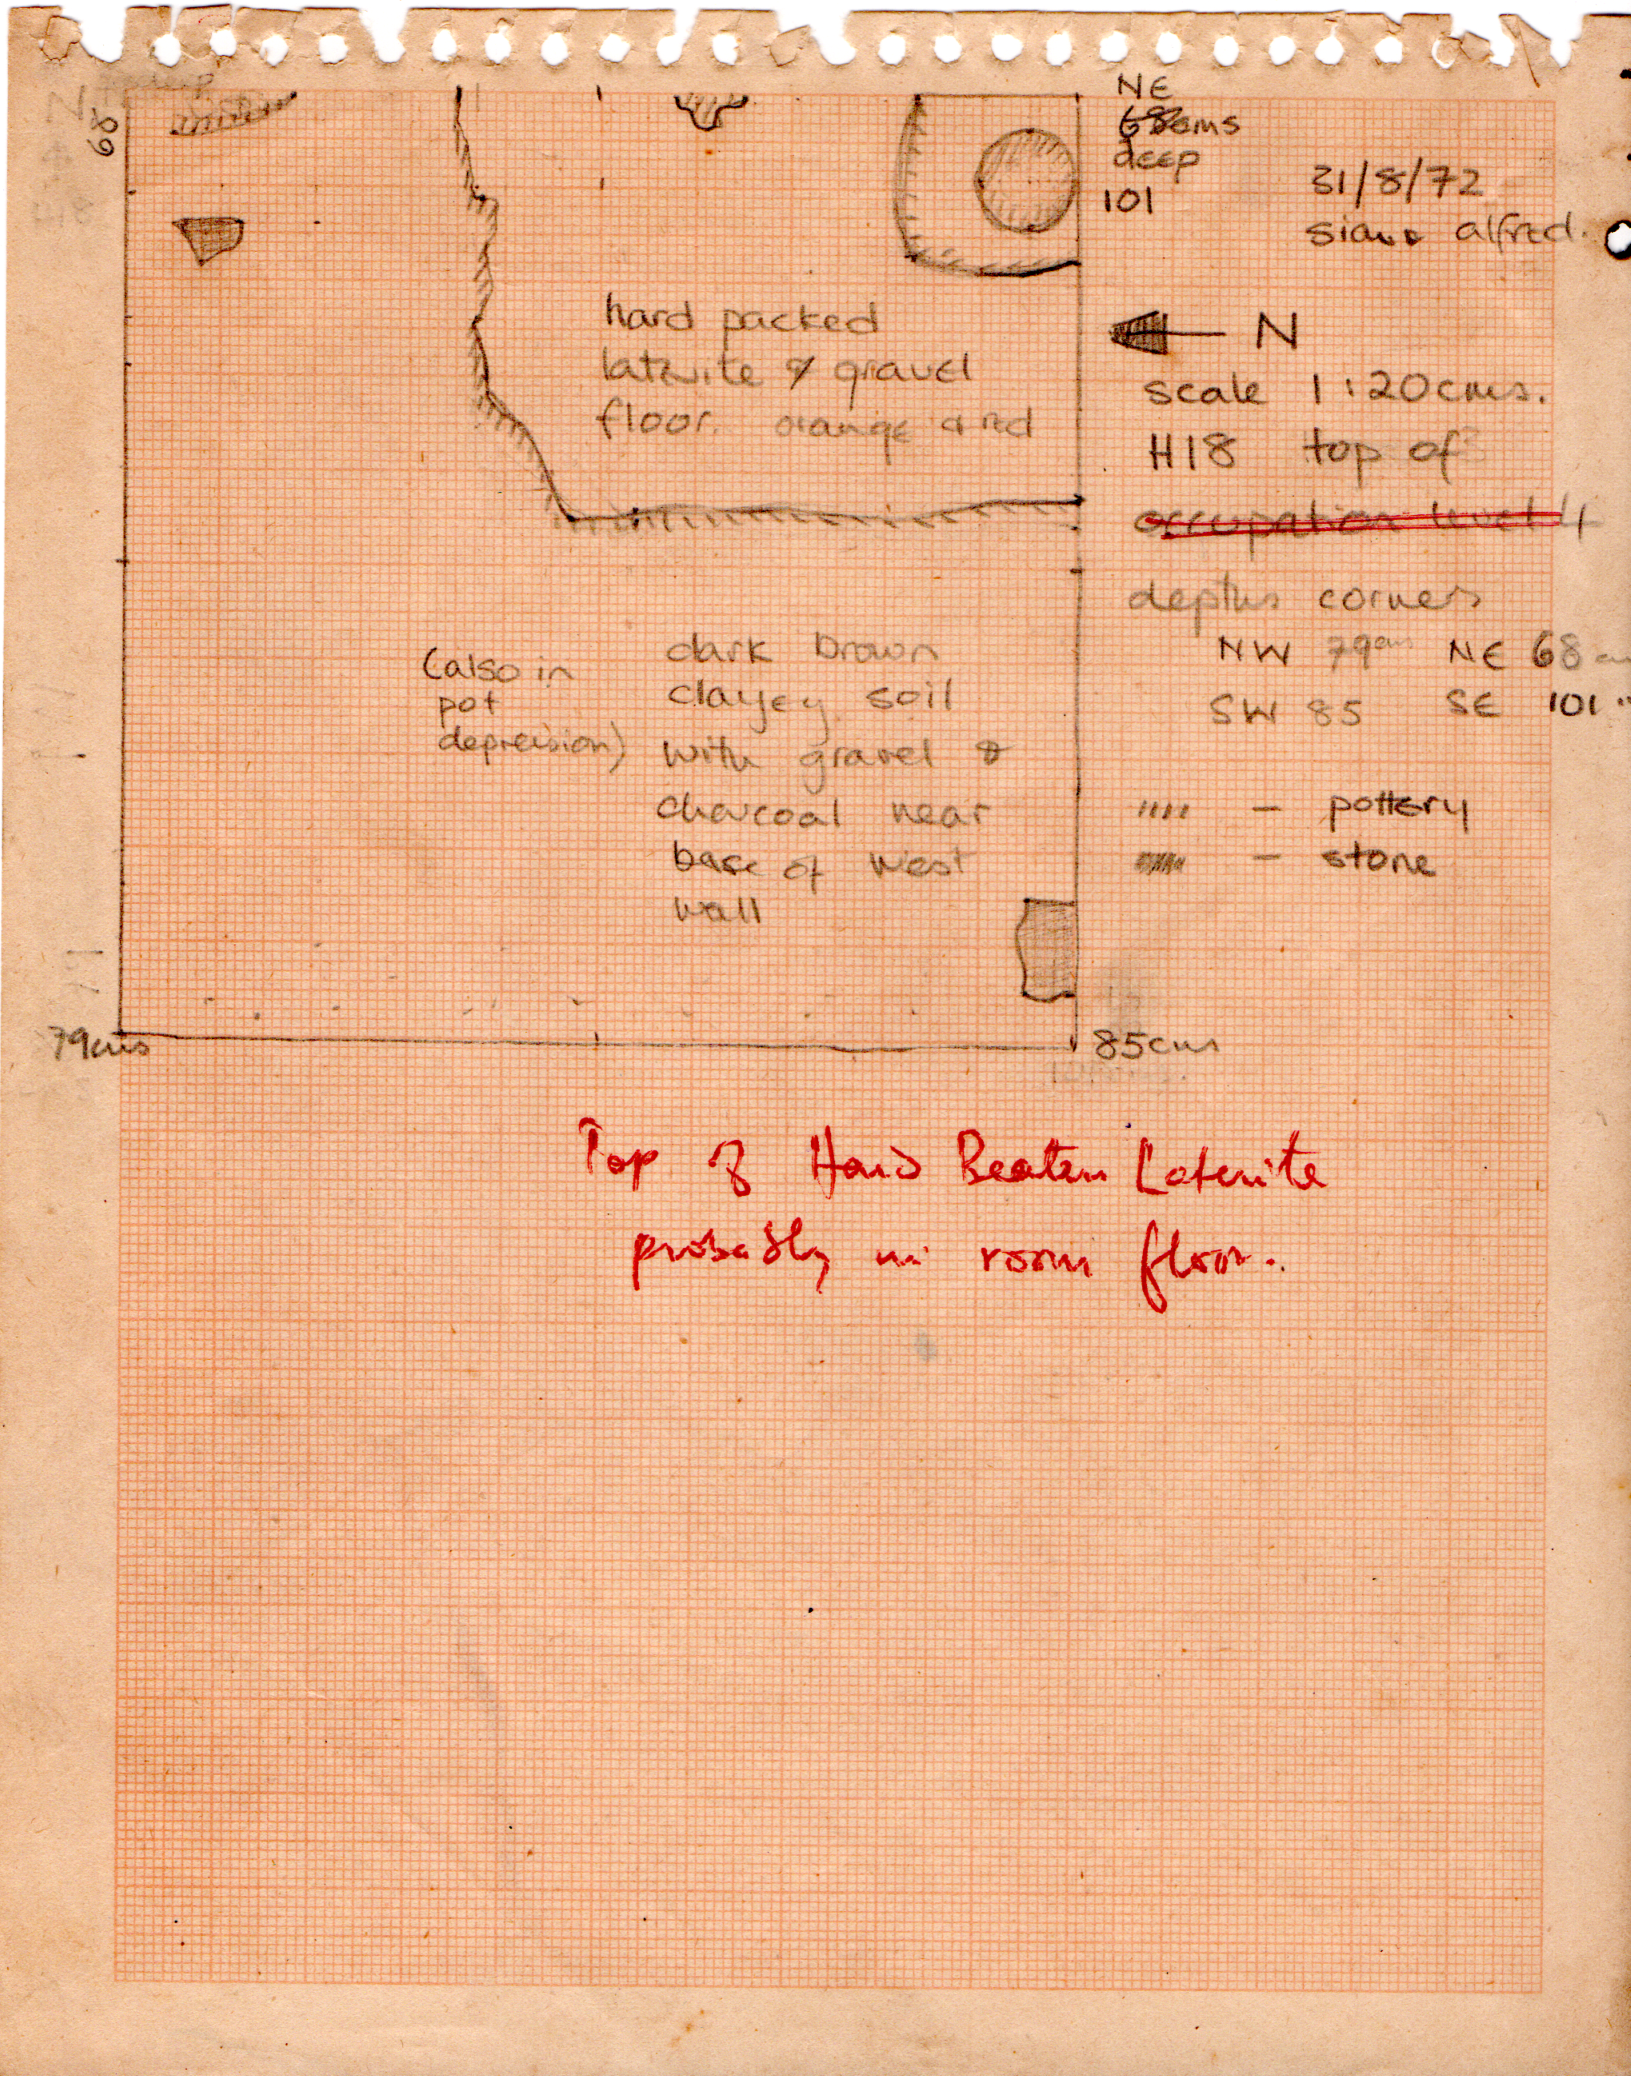 NE
68cms
deep
101
31/8/72
alfred.
68
N
scale 1:20cms.
H18 top of
occupation level 4
hard packed
laterite & gravel
floor. orange & red
depths corners
NW 79cm NE 68 cm
SW 85 SE 101 "
(also in
pot
depression)
dark brown
clayey soil
with gravel &
charcoal near
base of west
wall
//// – pottery
– stone
79cms
85cm
Top of Hard Beaten Laterite
probably in room floor.